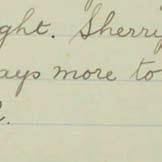 ght. Sherry
ays more to